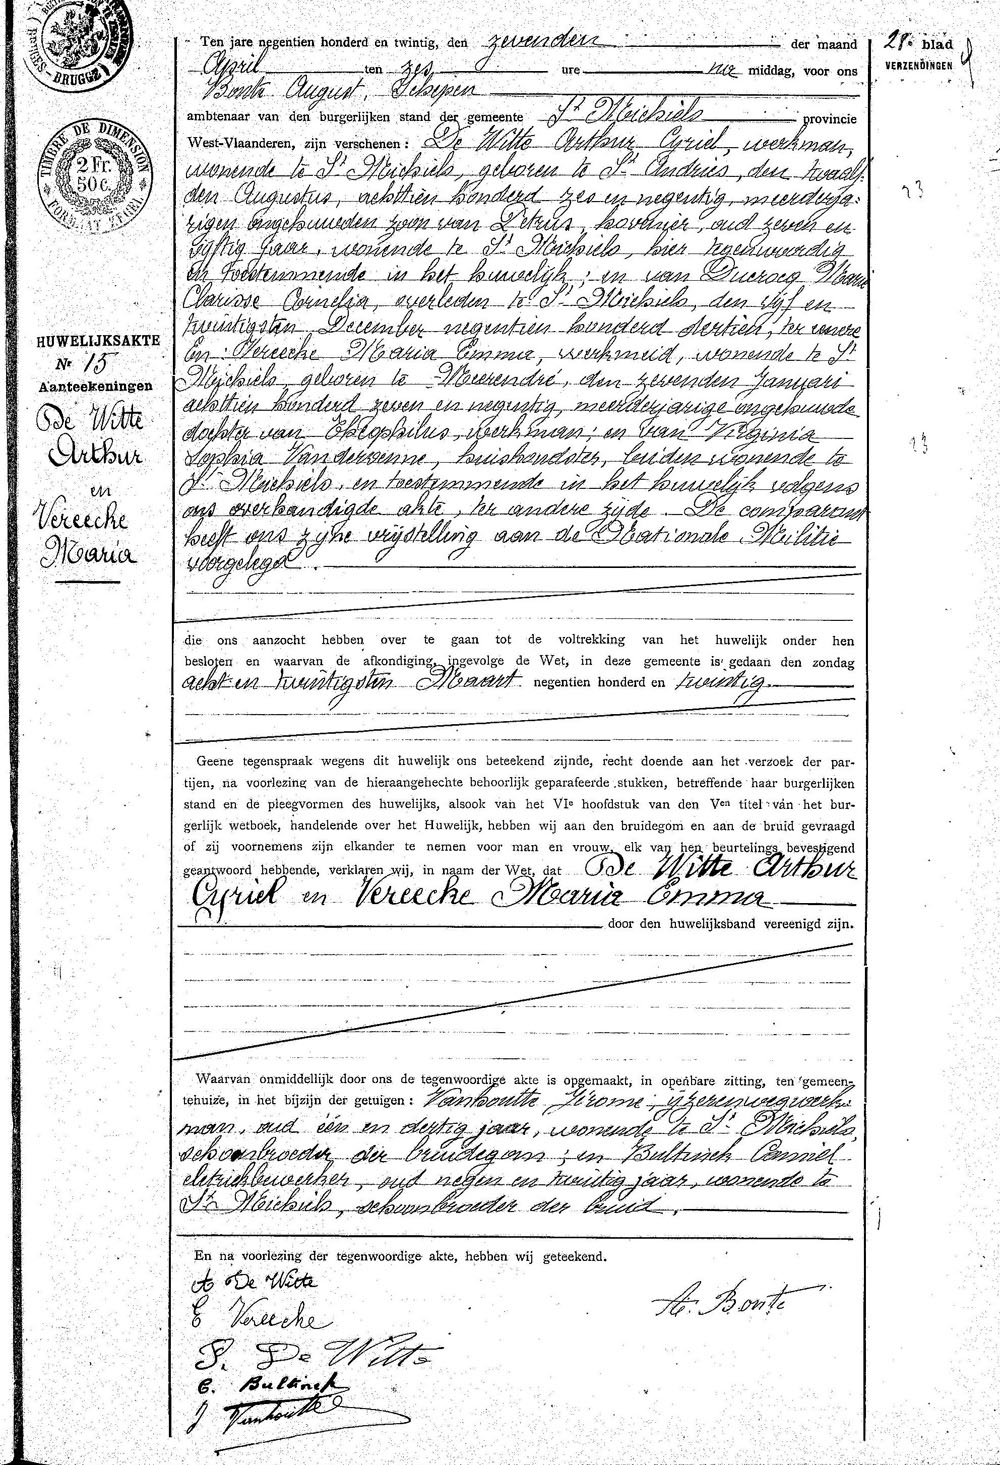 BRUGES-BRUGGE
TIMBRE DE DIMENSION
2 Fr.
50 c.
FORMAAT ZEGEL
28e blad
VERZENDINGEN
Ten jare negentien honderd en twintig, den zevenden der maand
April ten zes ure na middag, voor ons
Bonte August, Schepen
ambtenaar van den burgerlijken stand der gemeente St Michiels provincie
West-Vlaanderen, zijn verschenen : De Witte Arthur Cyriel, werkman,
wonende te St Michiels, geboren te St Andries, den twaalf-
den Augustus, achttien honderd zes en negentig, meerderja-
rigen ongehuwden zoon van Petrus, hovenier, oud zeven en
vijftig jaar, wonende te St Michiels, hier tegenwoordig
en toestemmende in het huwelijk ; en van Ducrocq Marie
Clarisse Cornelia, overleden te St Michiels, den vijf en
twintigsten December negentien honderd dertien, ter eenre
En : Vereecke Maria Emma, werkmeid, wonende te St
Michiels, geboren te Meerendré, den zevenden Januari
achttien honderd zeven en negentig, meerderjarige ongehuwde
dochter van Theophilus, werkman ; en van Virginia
Sophia Vanderoenne, huishoudster, beiden wonende te
St Michiels, en toestemmende in het huwelijk volgens
ons overhandigde akte, ter andere zijde. De comparant
heeft ons zijne vrijstelling aan de Nationale Militie
voorgelegd.
HUWELIJKSAKTE
Nr 15
Aanteekeningen
De Witte
Arthur
en
Vereecke
Maria
23
13
die ons aanzocht hebben over te gaan tot de voltrekking van het huwelijk onder hen
besloten en waarvan de afkondiging, ingevolge de Wet, in deze gemeente is gedaan den zondag
acht en twintigsten Maart negentien honderd en twintig.
Geene tegenspraak wegens dit huwelijk ons beteekend zijnde, recht doende aan het verzoek der par-
tijen, na voorlezing van de hieraangehechte behoorlijk geparafeerde stukken, betreffende haar burgerlijken
stand en de pleegvormen des huwelijks, alsook van het VIe hoofdstuk van den Ven titel van het bur-
gerlijk wetboek, handelende over het Huwelijk, hebben wij aan den bruidegom en aan de bruid gevraagd
of zij voornemens zijn elkander te nemen voor man en vrouw, elk van hen beurtelings bevestigend
geantwoord hebbende, verklaren wij, in naam der Wet, dat De Witte Arthur
Cyriel en Vereecke Maria Emma
door den huwelijksband vereenigd zijn.
Waarvan onmiddellijk door ons de tegenwoordige akte is opgemaakt, in openbare zitting, ten gemeen-
tehuize, in het bijzijn der getuigen : Vanhoutte Jirome, ijzerenwegwerk-
man, oud één en dertig jaar, wonende te St Michiels,
schoonbroeder der bruidegom ; en Bultinck Camiel
eletriekbewerker, oud negen en twintig jaar, wonende te
St Michiels, schoonbroeder der bruid.
En na voorlezing der tegenwoordige akte, hebben wij geteekend.
A De Witte
E Vereecke
A. Bonte
P. De Witte
C. Bultinck
J Vanhoutte